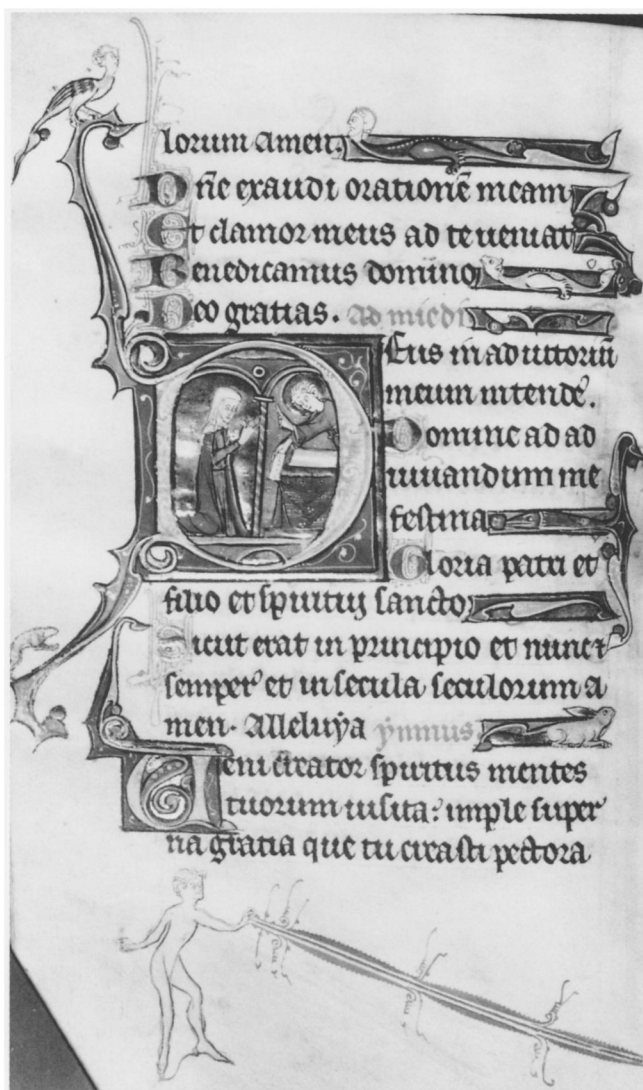 lorum amen.
Dñe exaudi orationẽ meam
Et clamor meus ad te ueniat
Benedicamus domino
Deo gratias. Ad miedi
Deus in adiutoriũ
meum intende.
Domine ad ad
iuuandum me
festina
Gloria patri et
filio et spiritui sancto
Sicut erat in principio et nunc ⁊
semper et in secula seculorum a
men. Alleluya ynmus
Ueni creator spiritus mentes
tuorum uisita: imple super
na gratia que tu creasti pectora